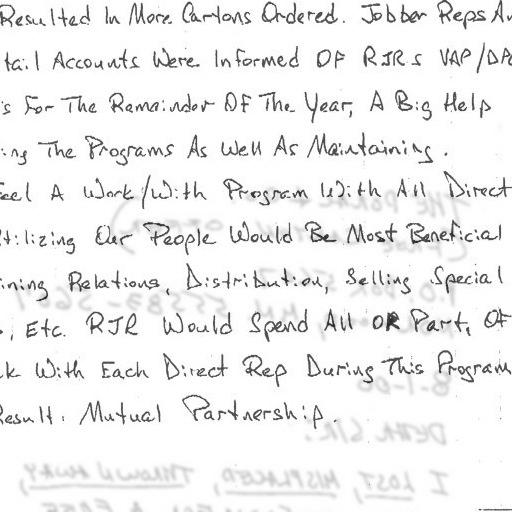 Resulted In More Cartons Ordered. Jobber Reps An
tail Accounts Were Informed OF RJRs VAP/DP
s For The Remainder OF The Year, A Big Help
ing The Programs As Well As Maintaining.
eel A Work/With Program With All Direct
tilizing Our People Would Be Most Beneficial
ining Relations, Distribution, Selling Special
, Etc. RJR Would Spend All OR Part, OF
k With Each Direct Rep During This Program
Result. Mutual Partnership.
8-1-00
DEATH CIR.
I LOST, MISPLACED, THROWN AWAY,